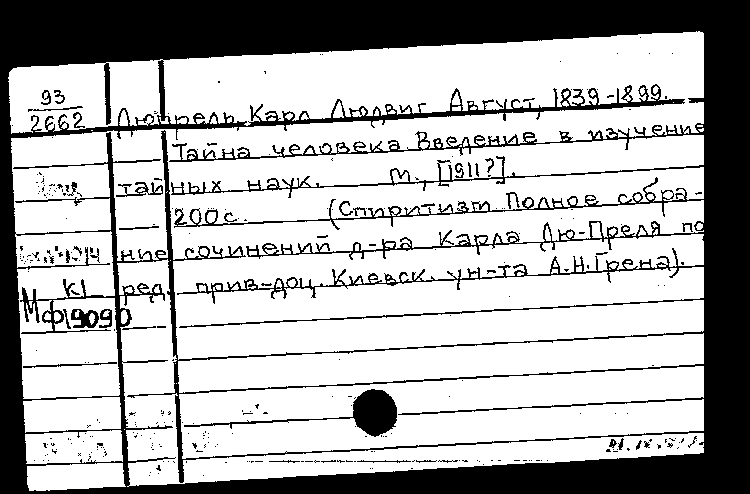 93
2662 Дюпрель, Карл Людвиг Август, 1839-1899.
Тайна человека. Введение в изучение
тайных наук. М., [1911?].
200с. (Спиритизм Полное собра-
ние сочинений д-ра Карла Дю-Преля по
К1 ред. прив-доц. Киевск. ун-та А.Н.Грена).
Мф19090